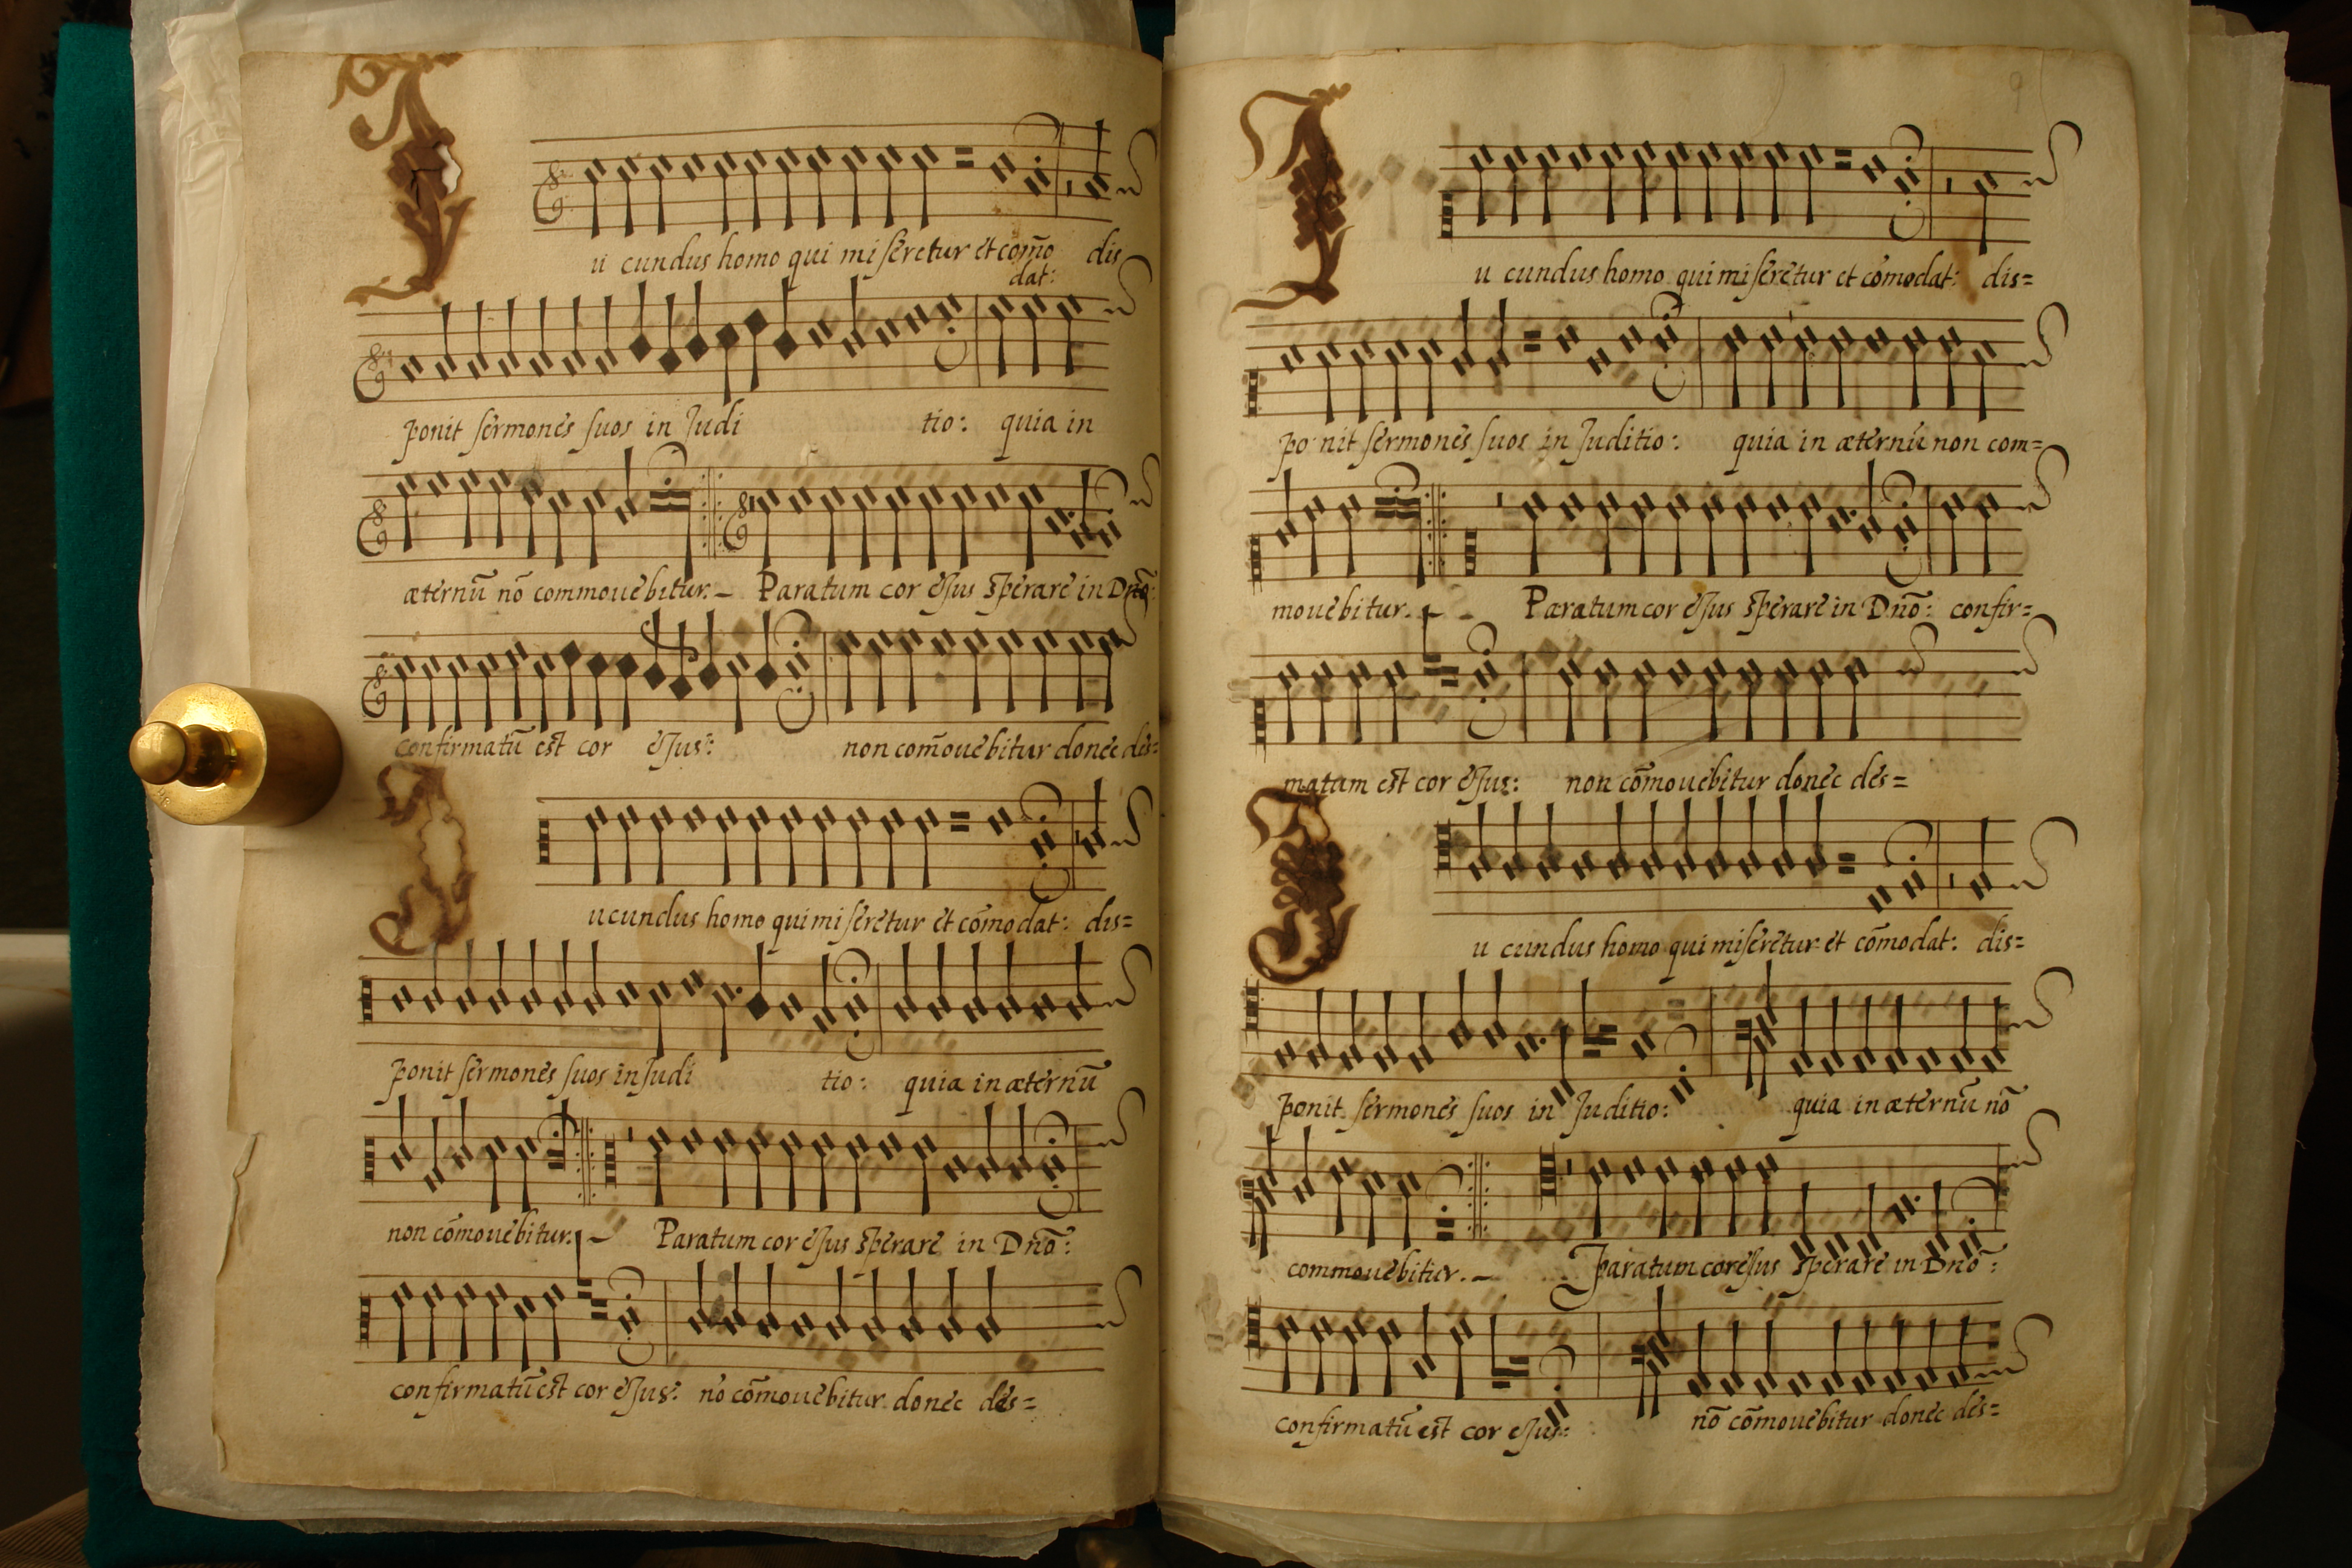 Iu cundus homo qui miseretur et com̃o dis
dat:
ponit sermones suos in Judi tio: quia in
æternũ nõ commouebitur. Paratum cor eJus sperare in Dnõ:
confirmatũ est cor eJus: non com̃ouebitur donec des=
Iucundus homo qui miseretur et cõmodat: dis=
ponit sermones suos in Judi tio: quia in æternũ
non cõmouebitur. Paratum cor eJus sperare in Dnõ:
confirmatũ est cor eJus: nõ cõmouebitur donec des=
9
Iu cundus homo qui miseretur et cõmodat: dis=
po nit sermones suos in Juditio: quia in æternũ non com=
mouebitur. Paratum cor eJus sperare in Dnõ: confir=
matum est cor eJus: non cõmouebitur donec des=
Iu cundus homo qui miseretur et cõmodat: dis=
ponit sermones suos in Juditio: quia in æternũ nõ
commouebitur. Paratum cor eJus sperare in Dnõ:
confirmatũ est cor eJus: nõ cõmouebitur donec des=